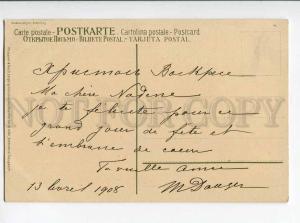 Carte postale - POSTKARTE - Cartolina postale - Postcard
ОТКРЫТОЕ ПИСЬМО - BILHETE POSTAL - TARJETA POSTAL.
Христосъ Воскресе
Ma chère Nadine
je te félicite pour ce
grand jour de fête et
t'embrasse de coeur
Ta vieille amie
13 Avril 1908 M Dauger
NOT FOR COPY